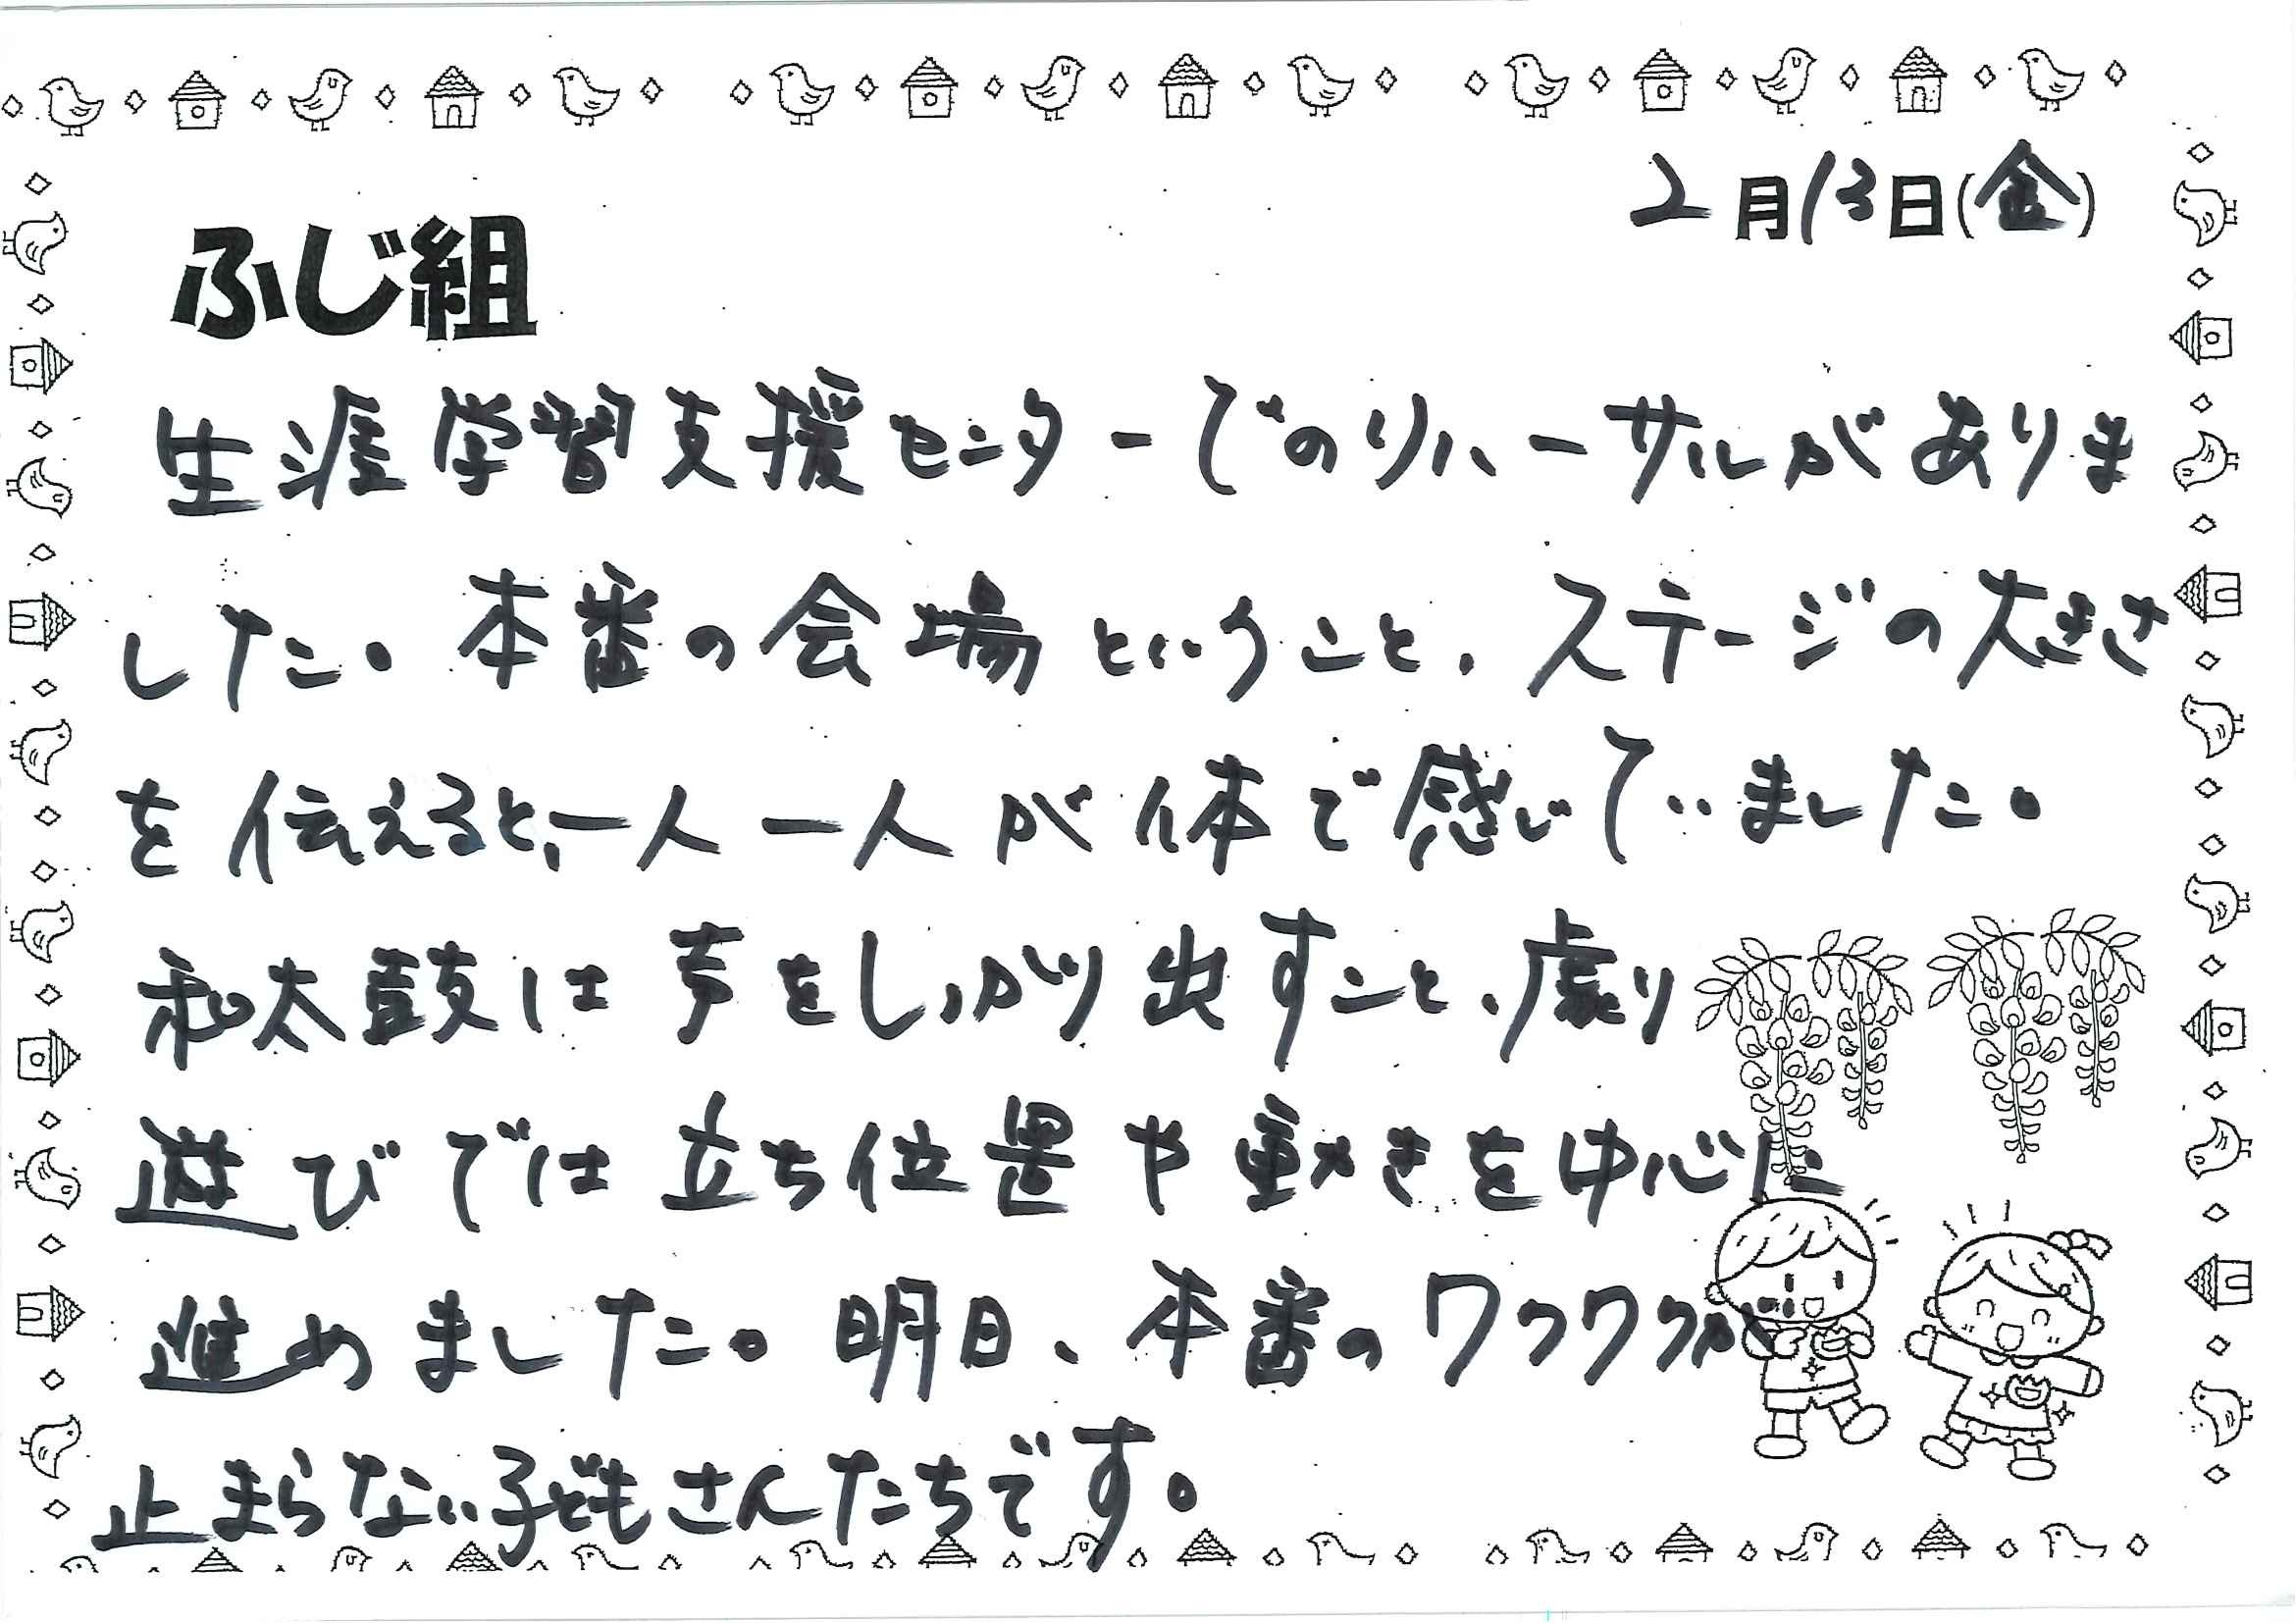 2月13日(金)
ふじ組
生涯学習支援センターでのリハーサルがありま
した。本番の会場ということ、ステージの大きさ
を伝えると、一人一人が体で感じていました。
和太鼓は声をしっかり出すこと、劇り
遊びでは立ち位置や動きを中心に
進めました。明日、本番のワクワクが
止まらない子どもさんたちです。